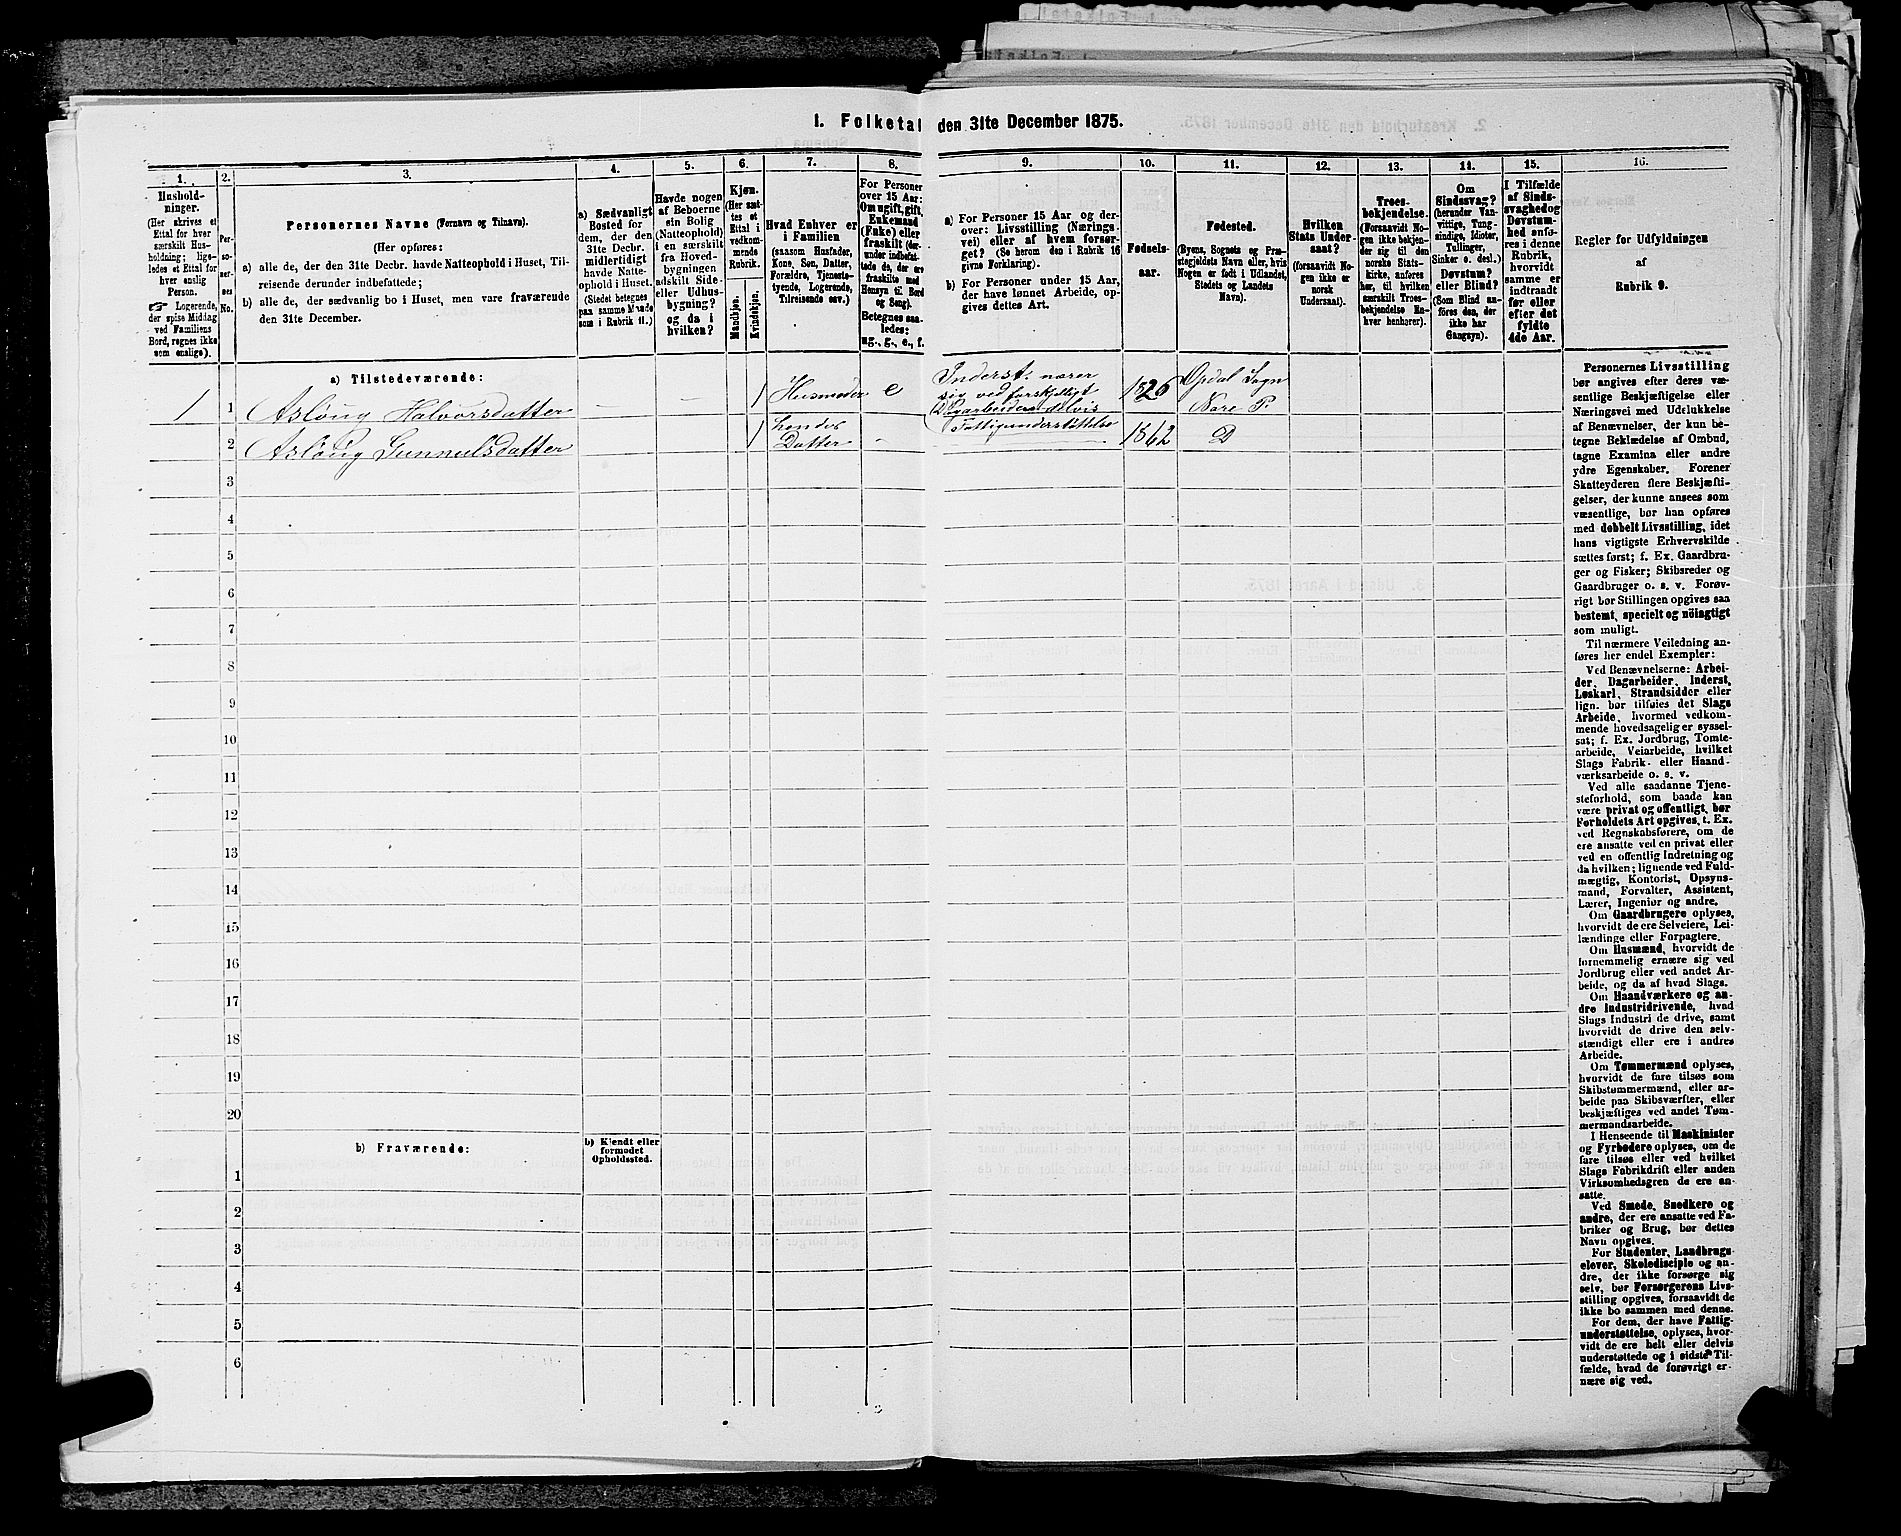 1. Folketal den 31te December 1875.
1.
Hushold-
ninger.
(Her skrives et
Ettal for hver
særskilt Hus-
holdning; lige-
ledes et Ettal for
hver enslig
Person.
Logerende,
der spise Middag
ved Familiens
Bord, regnes ikke
som enslige).
2.
Per-
so-
ner-
nes
No.
3.
Personernes Navne (Fornavn og Tilnavn).
(Her opføres:
a) alle de, der den 31te Decbr. havde Natteophold i Huset, Til-
reisende derunder indbefattede;
b) alle de, der sædvanlig bo i Huset, men vare fraværende
den 31te December.
4.
a) Sædvanligt
Bosted for
dem, der den
31te Decbr.
midlertidigt
havde Natte-
ophold i Huset.
(Stedet betegnes
paa samme Maade
som i Rubrik 11.)
5.
Havde nogen
af Beboerne
sin Bolig
(Natteophold)
i en særskilt
fra Hoved-
bygningen
adskilt Side-
eller Udhus-
bygning?
og da i
hvilken?
6.
Kjøn.
(Her sæt-
tes et
Ettal i
vedkom-
mende
Rubrik.
Mandkjøn.
Kvindekjøn.
7.
Hvad Enhver er
i Familien
(saasom Husfader,
Kone, Søn, Datter,
Forældre, Tjeneste-
tyende, Logerende,
Tilreisende osv.)
8.
For Personer
over 15 Aar:
Om ugift, gift,
Enkemand
(Enke) eller
fraskilt (der-
under indbefat-
tede de, der ere
fraskilte med
Hensyn til Bord
og Seng).
Betegnes saa-
ledes:
ug., g., e., f.
9.
a) For Personer 15 Aar og der-
over: Livsstilling (Nærings-
vei) eller af hvem forsør-
get. (Se herom den i Rubrik 16
givne Forklaring).
b) For Personer under 15 Aar,
der have lønnet Arbeide, op-
gives dettes Art.
10.
Fødsels-
aar.
11.
Fødested.
(Byens, Sognets og Præ-
stegjeldets Navn eller, hvis
Nogen er født i Udlandet,
Stedets og Landets
Navn).
12.
Hvilken
Stats Under-
saat?
(forsaavidt No-
gen ikke er
norsk
Undersaat).
13.
Troes-
bekjendelse.
(Forsaavidt No-
gen ikke bekjen-
der sig til den
norske Stats-
kirke, anføres
her, til hvilken
særskilt Troes-
bekjendelse En-
hver henhører).
14.
Om
Sindssvag?
(herunder Van-
vittige, Tung-
sindige, Idioter,
Tullinger,
Sinker o. desl.)
Døvstum?
eller Blind?
(Som Blind an-
føres den, der
ikke har
Gangsyn).
15.
I Tilfælde
af Sinds-
svaghed og
Døvstum-
hed anfø-
res i denne
Rubrik,
hvorvidt
samme er
indtraadt
før eller
efter det
fyldte
4de Aar.
16.
Regler for Udfyldningen
af
Rubrik 9.
a) Tilstedeværende:
1 1 Aslöug Halvorsdatter 1 Husmoder e Inderst: nærer
sig ved forskjelligt
Dagarbeide delvis
Fattigunderstøttelse 1826 Opdal Sogn
Nore P.
2 Aslöug Gunnulsdatter 1 hendes
Datter 1862 D
3
4
5
6
7
8
9
10
11
12
13
14
15
16
17
18
19
20
b) Fraværende:
b) Kjendt eller
formodet
Opholdssted.
1
2
3
4
5
6
Personernes Livsstilling
bør angives efter deres væ-
sentlige Beskjæftigelse eller
Næringsvei med Udelukkelse
af Benævnelser, der kun be-
tegne Beklædelse af Ombud,
tagne Examina eller andre
ydre Egenskaber. Forener
Skatteyderen flere Beskjæfti-
gelser, der kunne ansees som
væsentlige, bør han opføres
med dobbelt Livsstilling, idet
hans vigtigste Erhvervskilde
sættes først; f. Ex. Gaardbru-
ger og Fisker; Skibsreder og
Gaardbruger o. s. v. Forøv-
rigt bør Stillingen opgives saa
bestemt, specielt og nöiagtigt
som muligt.
Til nærmere Veiledning an-
føres her endel Exempler:
Ved Benævnelserne: Arbei-
der, Dagarbeider, Inderst,
Løskarl, Strandsidder eller
lign. bør tilføies det Slags
Arbeide, hvormed vedkom-
mende hovedsagelig er syssel-
sat; f. Ex. Jordbrug, Tomte-
arbeide, Veiarbeide, hvilket
Slags Fabrik- eller Haand-
værksarbeide o. s. v.
Ved alle saadanne Tjene-
steforhold, som baade kan
være privat og offentligt, bør
Forholdets Art opgives, t. Ex.
ved Regnskabsførere, om de
ere ansatte ved en privat eller
ved en offentlig Indretning og
da hvilken; lignende ved Fuld-
mægtig, Kontorist, Opsyns-
mand, Forvalter, Assistent,
Lærer, Ingeniør og andre.
Om Gaardbrugere oplyses,
hvorvidt de ere Selveiere, Lei-
lændinge eller Forpagtere.
Om Husmænd, hvorvidt de
fornemmelig ernære sig ved
Jordbrug eller ved andet Ar-
beide, og da af hvad Slags.
Om Haandværkere og an-
dre Industridrivende, hvad
Slags Industri de drive, samt
hvorvidt de drive den selv-
stændigt eller ere i andres
Arbeide.
Om Tømmermænd oplyses,
hvorvidt de fare tilsøs som
Skibstømmermænd, eller ar-
beide paa Skibsværfter, eller
beskjæftiges ved andet Tøm-
mermandsarbeide.
I Henseende til Maskinister
og Fyrbødere oplyses, om de
fare tilsøs eller ved hvilket
Slags Fabrikdrift eller anden
Virksomhedsgren de ere an-
satte.
Ved Smede, Snedkere og
andre, der ere ansatte ved Fa-
briker og Brug, bør dettes
Navn opgives.
For Studenter, Landbrugs-
elever, Skoledisciple og an-
dre, der ikke forsørge sig
selv, bør Forsørgerens Livs-
stilling opgives, forsaavidt de
ikke bo sammen med denne.
For dem, der have Fattig-
understøttelse, oplyses, hvor-
vidt de ere helt eller delvis
understøttede og i sidste Til-
fælde, hvad de forøvrigt er-
nære sig ved.